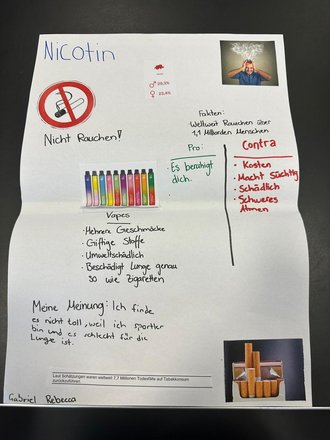 Nicotin
♂ 26,3%
♀ 22,4%
Nicht Rauchen!
Fakten:
Weltweit Rauchen über
1,1 Milliarden Menschen
Pro:
· Es beruhigt
dich.
Contra
· Kosten
· Macht Süchtig
· Schädlich
· Schweres
Atmen
Vapes
· Mehrere Geschmäcke
· Giftige Stoffe
· Umweltschädlich
· Beschädigt Lunge genau
so wie Zigaretten
Meine Meinung: Ich finde
es nicht toll, weil ich sportler
bin und es schlecht für die
Lunge ist.
Laut Schätzungen waren weltweit 7,7 Millionen Todesfälle auf Tabakkonsum
zurückzuführen.
Gabriel Rebecca